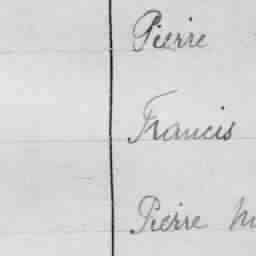 Pierre
Francis
Pierre